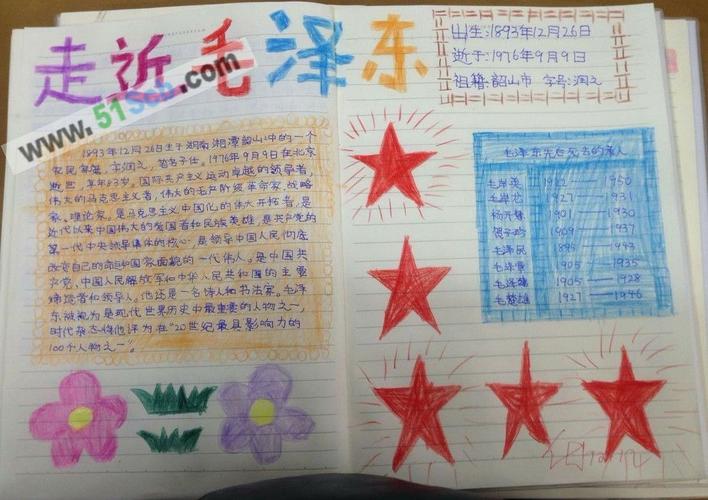 走近毛泽东
出生:1893年12月26日
逝于:1976年9月9日
祖籍:韶山市 字号:润之
www.51Scb.com
1893年12月26日生于湖南湘潭韶山冲的一个
农民家庭,字润之,笔名子任。1976年9月9日在北京
逝世,享年83岁。国际共产主义运动卓越的领导者,
伟大的马克思主义者,伟大的无产阶级革命家、战略
家、理论家,是马克思主义中国化的伟大开拓者,是
近代以来中国伟大的爱国者和民族英雄,是共产党的
第一代中央领导集体的核心,是领导中国人民彻底
改变自己的命运和国家面貌的一代伟人。是中国共
产党、中国人民解放军和中华人民共和国的主要
缔造者和领导人。他还是一名诗人和书法家。毛泽
东被视为是现代世界历史中最重要的人物之一,
时代杂志将他评为在"20世纪最具影响力的
100个人物之一"。
毛泽东先后死去的亲人
毛岸英 1922——1950
毛岸龙 1927——1931
杨开慧 1901——1930
贺子珍 1909——1937
毛泽民 1895——1943
毛泽覃 1905——1935
1905——1928
毛楚雄 1927——1946